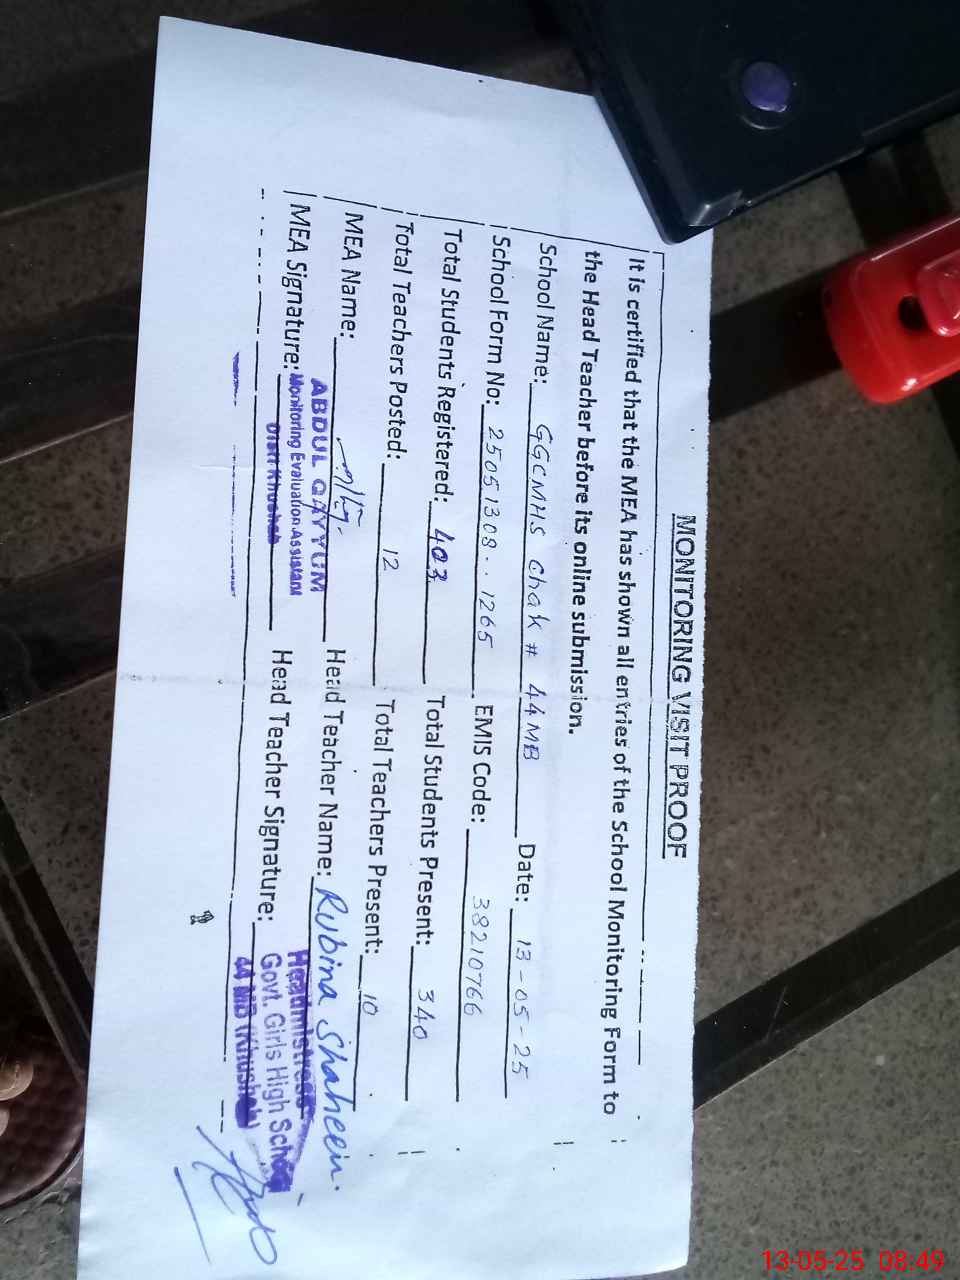 MONITORING VISIT PROOF
It is certified that the MEA has shown all entries of the School Monitoring Form to
the Head Teacher before its online submission.
School Name: GGCMHS Chak # 44MB Date: 13-05-25
School Form No: 25051308...1265 EMIS Code: 38210766
Total Students Registered: 403 Total Students Present: 340
Total Teachers Posted: 12 Total Teachers Present: 10
MEA Name: Head Teacher Name: Rubina Shaheen.
ABDUL QAYYUM
MEA Signature: Monitoring Evaluation Assistant Head Teacher Signature:
Distt Khushab
Headmistress
Govt. Girls High School
44 MB (Khushab)
13-05-25 08:49